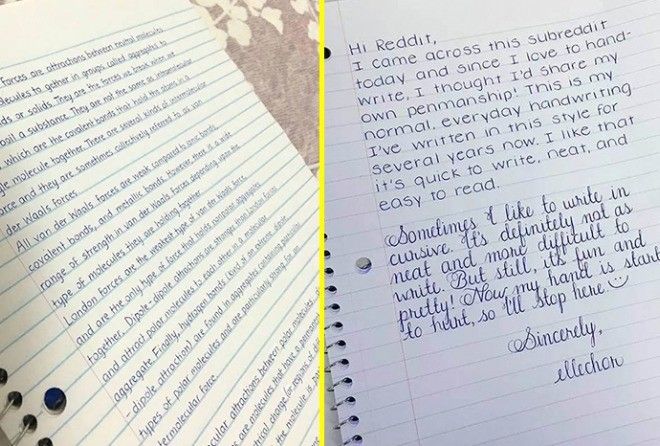 Forces are attractions between neutral molecules
to gather in groups called aggregates to
or solids. They are the forces we break when we
boil a substance. They are not the same as intramolecular
which are the covalent bonds that hold the atoms in a
molecule together. There are several kinds of intermolecular
and they are sometimes collectively referred to as van
der Waals forces.
All van der Waals forces are weak compared to ionic bonds,
covalent bonds, and metallic bonds. However, there is a wide
range of strength in van der Waals forces depending upon the
type of molecules they are holding together.
London forces are the weakest type of van der Waals force
and are the only type of force that holds nonpolar aggregates
together. Dipole-dipole attractions are stronger than London forces
and attract polar molecules to each other in a molecular
aggregate. Finally, hydrogen bonds (kind of an extreme dipole
-dipole attraction) are found in aggregates containing particular
types of polar molecules and are particularly strong for
intermolecular force.
attractions between polar molecules
are molecules that have a permanent
charge for regions of
the molecule is
Hi Reddit,
I came across this subreddit
today and since I love to hand-
write, I thought I'd share my
own penmanship! This is my
normal, everyday handwriting
I've written in this style for
several years now. I like that
it's quick to write, neat, and
easy to read.
Sometimes I like to write in
cursive. It's definitely not as
neat and more difficult to
write. But still, it's fun and
pretty! Now my hand is start
to hurt, so I'll stop here
Sincerely,
ellechon